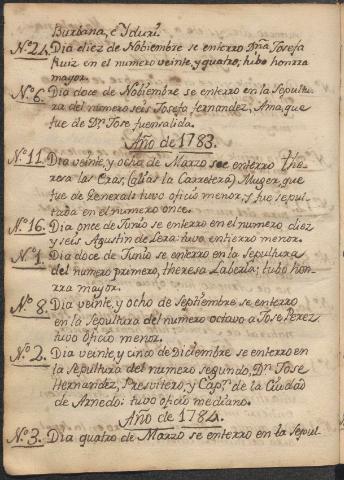 Burbana, e Yduri.
N.º 24. Dia diez de Nobiembre se enterro Dñā Josefa
Ruiz en el numero veinte, y quatro; tubo honrra
mayor.
N.º 6. Dia doce de Nobiembre se enterro en la Sepultu-
ra del numero seis Josefa fernandez, Ama, que
fue de Dn. Jose fuensalida.
Año de 1783.
N.º 11. Dia veinte, y ocho de Marzo se enterro The-
resa las Eras, (alias la Carretera) Muger, que
fue de General: tuvo oficio menor, y fue sepul-
tada en el numero once.
N.º 16. Dia once de Junio se enterro en el numero diez
y seis Agustin de Lera: tuvo entierro menor.
N.º 1. Dia doce de Junio se enterro en la Sepultura
del numero primero, theresa Laberia; tubo hon-
rra mayor.
N.º 8. Dia veinte, y ocho de Septiembre se enterro
en la Sepultura del numero octavo a Jose Perez
tuvo oficio menor.
N.º 2. Dia veinte, y cinco de Diciembre se enterro en
la Sepultura del numero segundo, Dn. Jose
Hernandez, Presvitero, y Capn. de la Ciudad
de Arnedo: tuvo oficio mediano.
Año de 1784.
N.º 3. Dia quatro de Marzo se enterro en la Sepul-